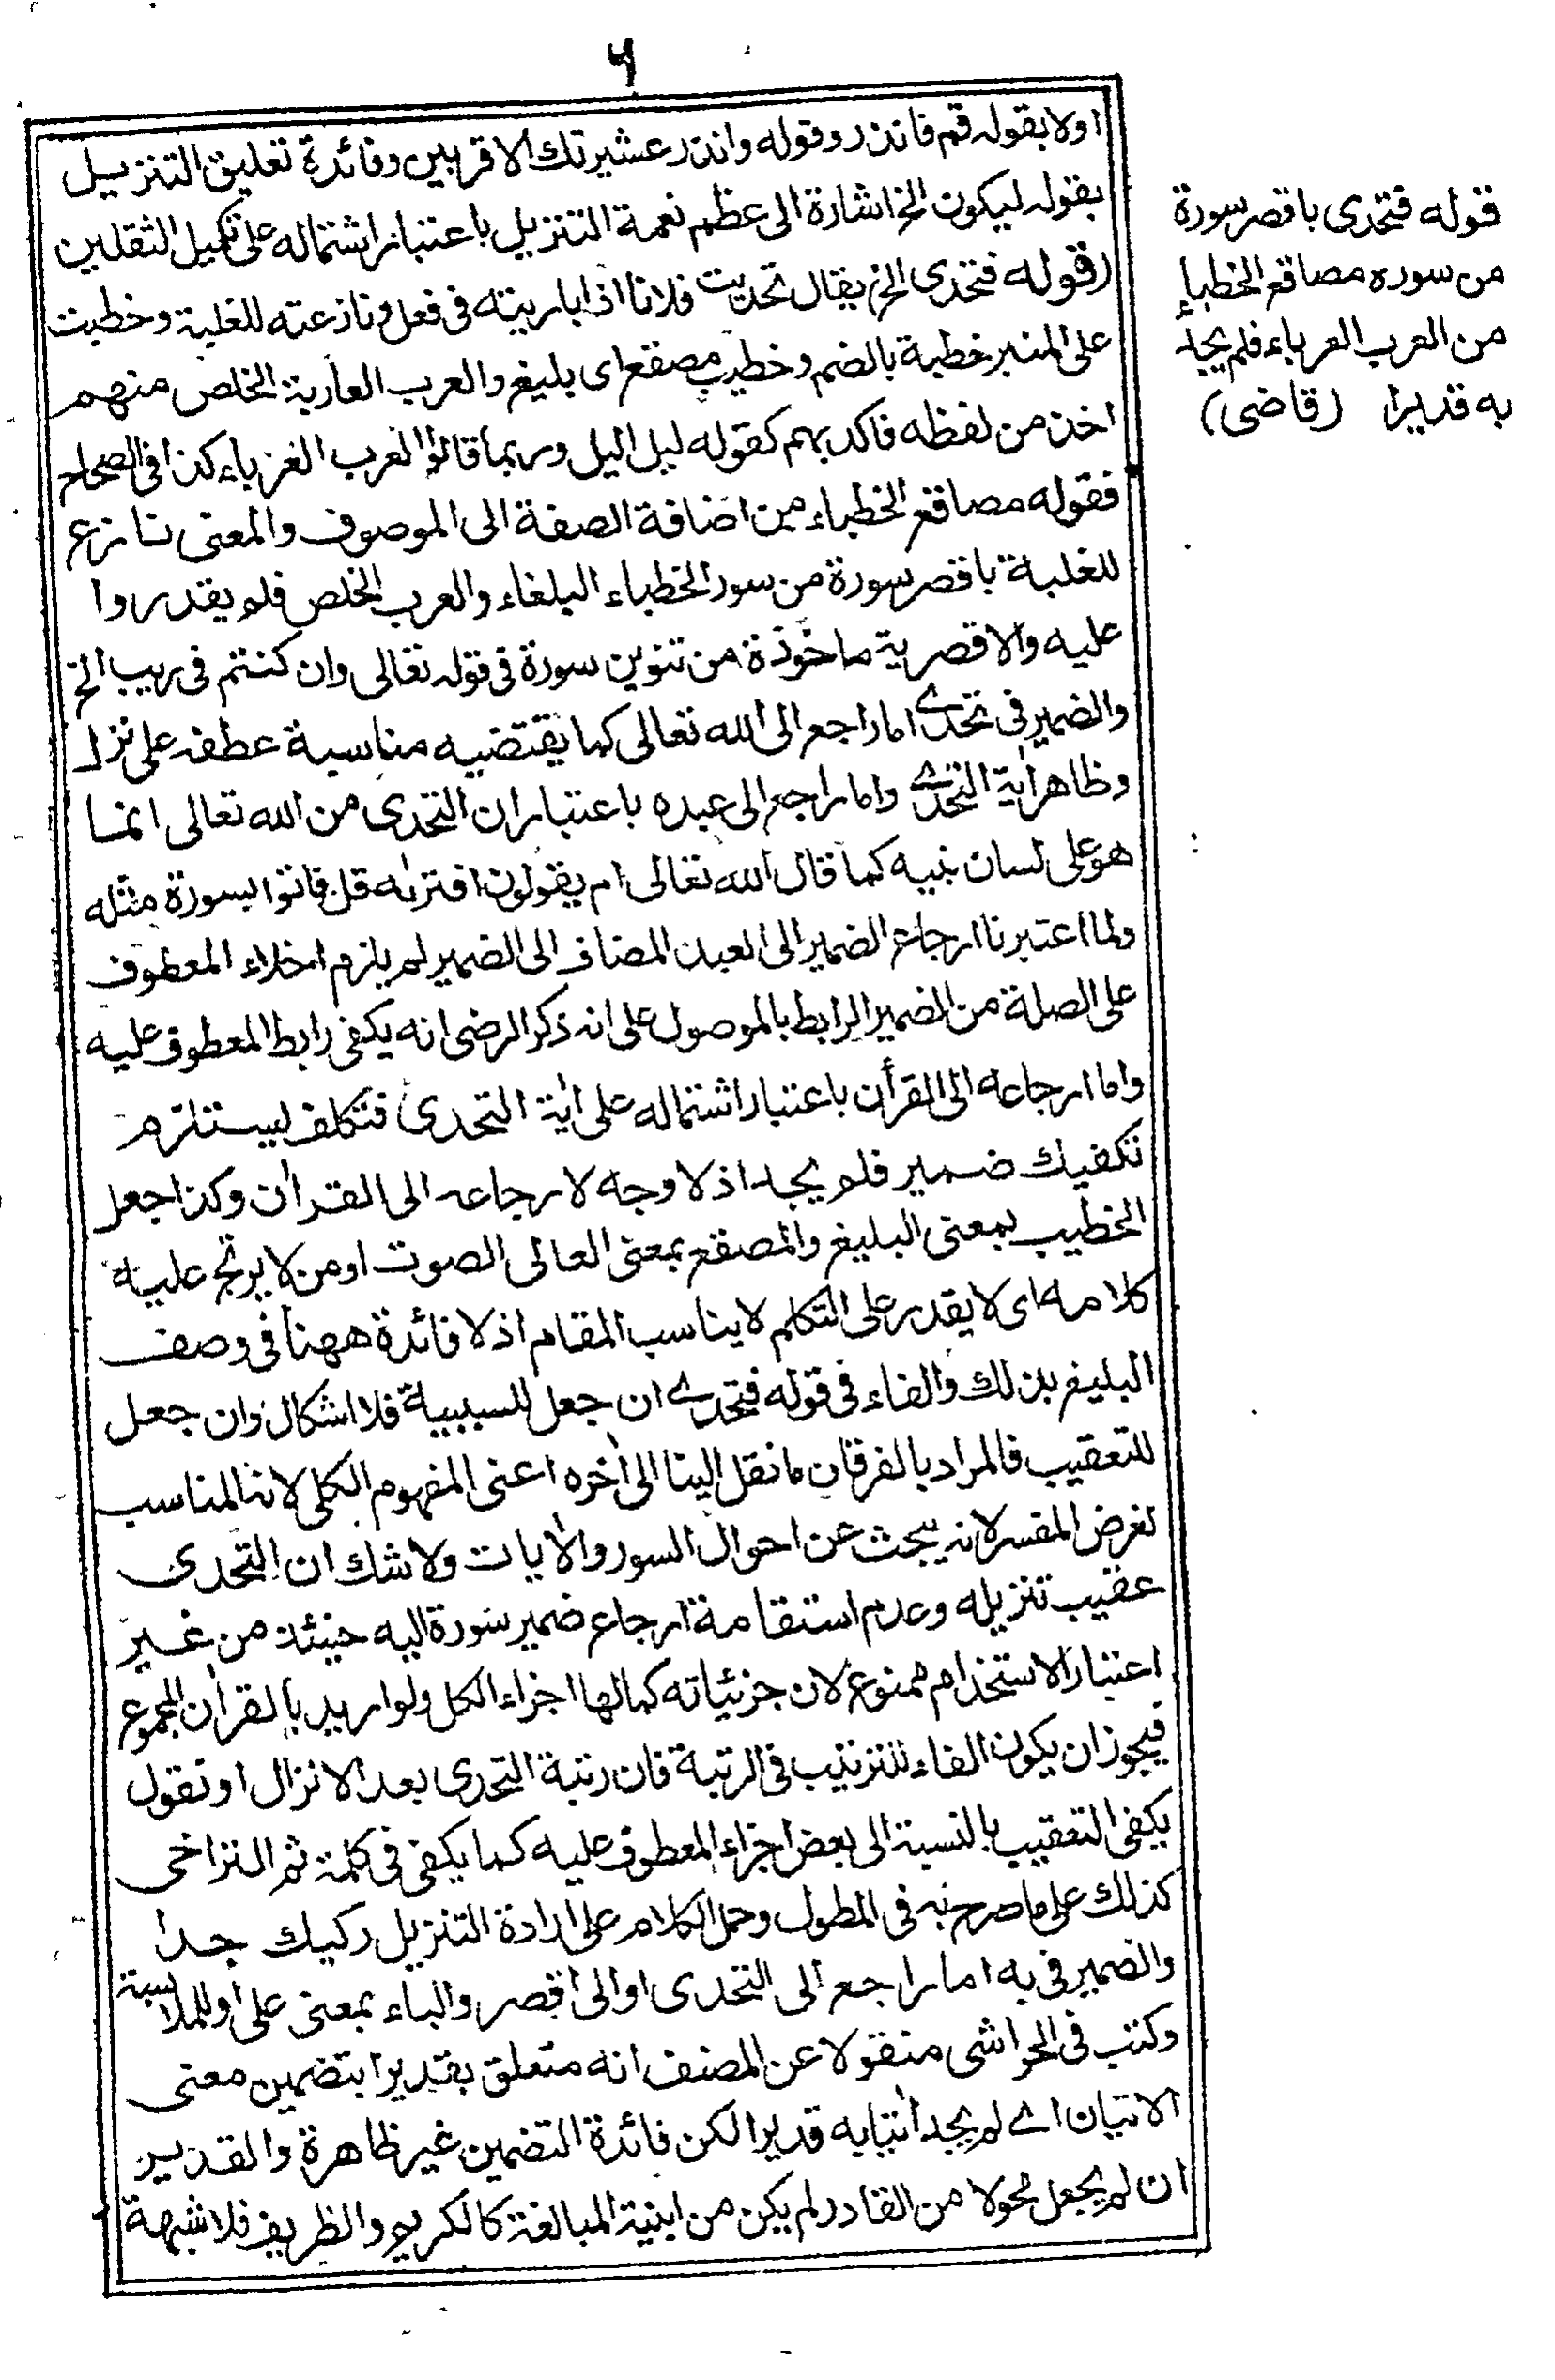 ٦
اولا بقوله قم فانذر وقوله وانذر عشيرتك الاقربين وفائدة تعليق التنزيل
بقوله ليكون الخ اشارة الى عظم نعمة التنزيل باعتبار اشتماله على تكميل الثقلين
(قوله فتحدى الخ) يقال تحديت فلانا اذا باريته في فعل ونازعته للغلبة وخطبت
على المنبر خطبة بالضم وخطيب مصقع اى بليغ والعرب العاربة الخلص منهم
اخذ من لفظه فاكد بهم كقوله ليل اليل وربما قالوا العرب العرباء كذا في الصحاح
فقوله مصاقع الخطباء من اضافة الصفة الى الموصوف والمعنى نازع
للغلبة باقصر سورة من سور الخطباء البلغاء والعرب الخلص فلم يقدروا
عليه والاقصرية ماخوذة من تنوين سورة في قوله تعالى وان كنتم في ريب الخ
والضمير في تحدى اما راجع الى الله تعالى كما يقتضيه مناسبة عطفه على نزل
وظاهر اية التحدى واما راجع الى عبده باعتبار ان التحدى من الله تعالى انما
هو على لسان نبيه كما قال الله تعالى ام يقولون افترىه قل فاتوا بسورة مثله
ولما اعتبرنا ارجاع الضمير الى العبد المضاف الى الضمير لم يلزم اخلاء المعطوف
على الصلة من الضمير الرابط بالموصول على انه ذكر الرضى انه يكفى رابط المعطوف عليه
واما ارجاعه الى القرأن باعتبار اشتماله على اية التحدى فتكلف ليستلزم
تكفيك ضمير فلم يجد اذ لا وجه لارجاعه الى القران وكذا جعل
الخطيب بمعنى البليغ والمصقع بمعنى العالى الصوت او من لا يرتج عليه
كلامه اى لا يقدر على التكلم لا يناسب المقام اذ لا فائدة ههنا في وصف
البليغ بذلك والفاء في قوله فتحدى ان جعل للسببية فلا اشكال وان جعل
للتعقيب فالمراد بالفرقان ما نقل الينا الى اخره اعنى المفهوم الكلى لانه المناسب
لغرض المفسر لانه يبحث عن احوال السور والايات ولا شك ان التحدى
عقيب تنزيله وعدم استقامة ارجاع ضمير سورة اليه حينئذ من غير
اعتبار الاستخدام ممنوع لان جزئياته كما لها اجزاء الكل ولو اريد بالقران المجموع
فيجوز ان يكون الفاء للترتيب في الرتبة فان رتبة التحدى بعد الانزال او نقول
يكفى التعقيب بالنسبة الى بعض اجزاء المعطوف عليه كما يكفى في كلمة ثم التراخى
كذلك على ما صرح به في المطول وحمل الكلام على ارادة التنزيل ركيك جدا
والضمير في به اما راجع الى التحدى او الى اقصر والباء بمعنى على او للملابسة
وكتب في الحواشى منقولا عن المصنف انه متعلق بقديرا بتضمين معنى
الاتيان اى لم يجد اتيا به قديرا لكن فائدة التضمين غير ظاهرة والقدير
ان لم يجعل محولا من القادر لم يكن من ابنية المبالغة كالكريم والظريف فلا شبهة
قوله فتحدى باقصر سورة
من سوره مصاقع الخطباء
من العرب العرباء فلم يجد
به قديرا (قاضى)